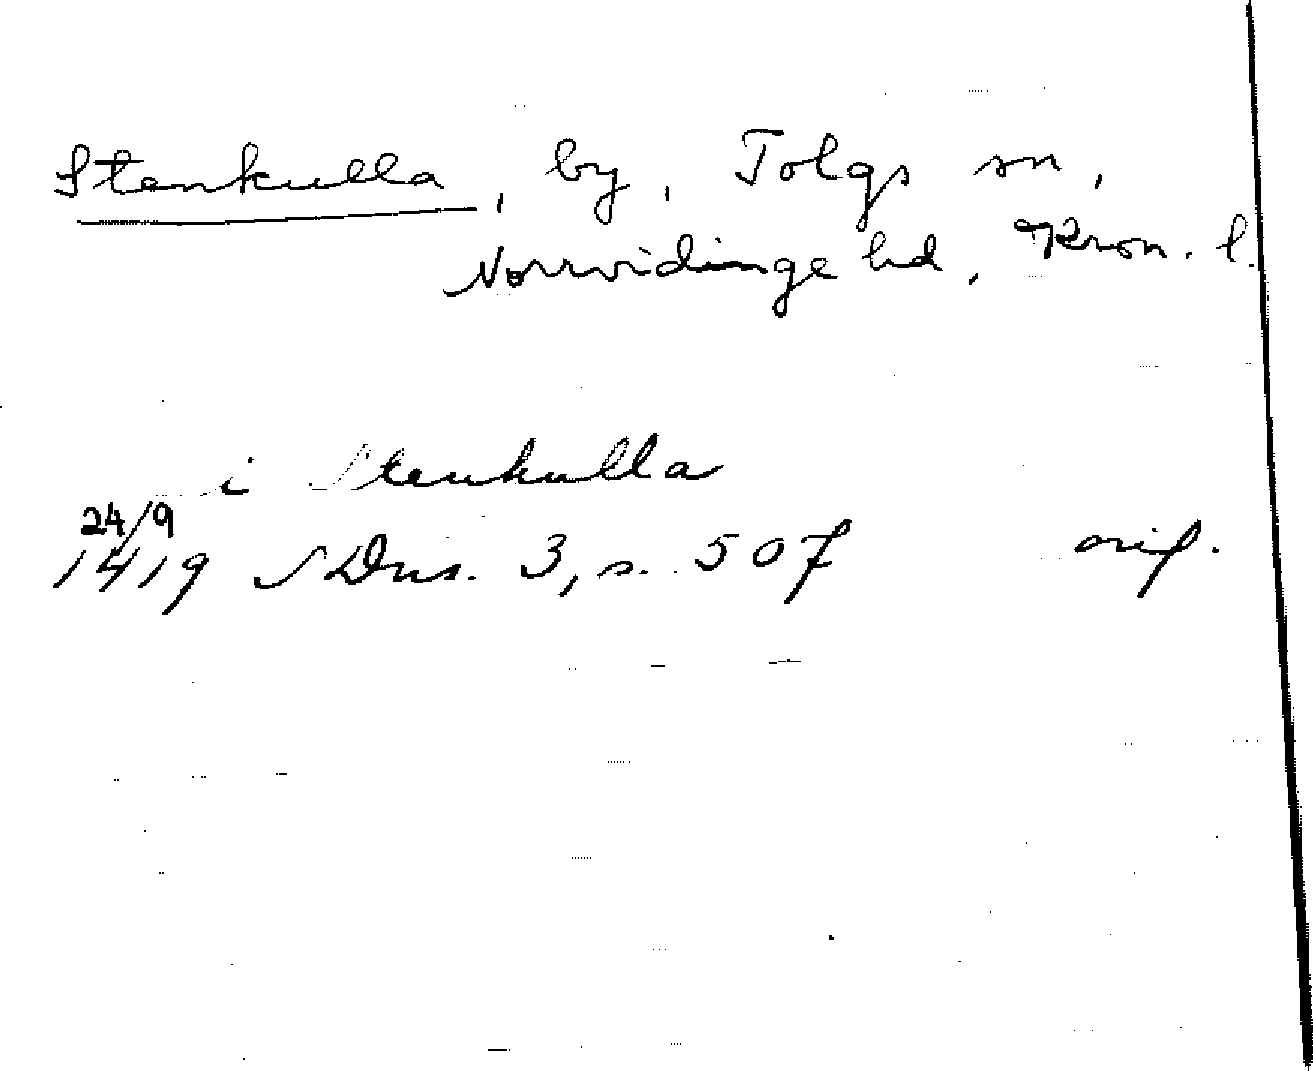 Stenkulla, by, Tolgs sn,
Norrvidinge hd, Kron. l.
i Stenkulla
24/9
1419 SDns. 3, s. 507 orig.